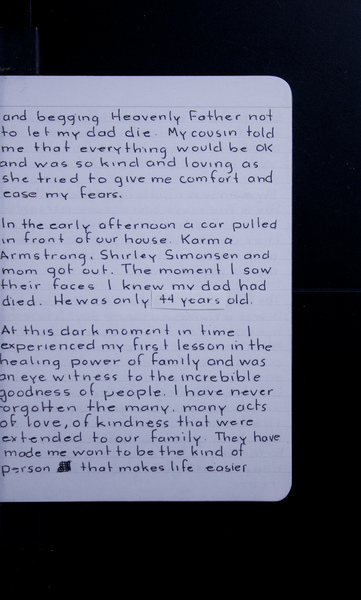 and begging Heavenly Father not
to let my dad die. My cousin told
me that everything would be OK
and was so kind and loving as
she tried to give me comfort and
ease my fears.
In the early afternoon a car pulled
in front of our house. Karma
Armstrong, Shirley Simonsen and
mom got out. The moment I saw
their faces I knew my dad had
died. He was only 44 years old.
At this dark moment in time I
experienced my first lesson in the
healing power of family and was
an eye witness to the increbible
goodness of people. I have never
forgotten the many, many acts
of love, of kindness that were
extended to our family. They have
made me want to be the kind of
person that makes life easier